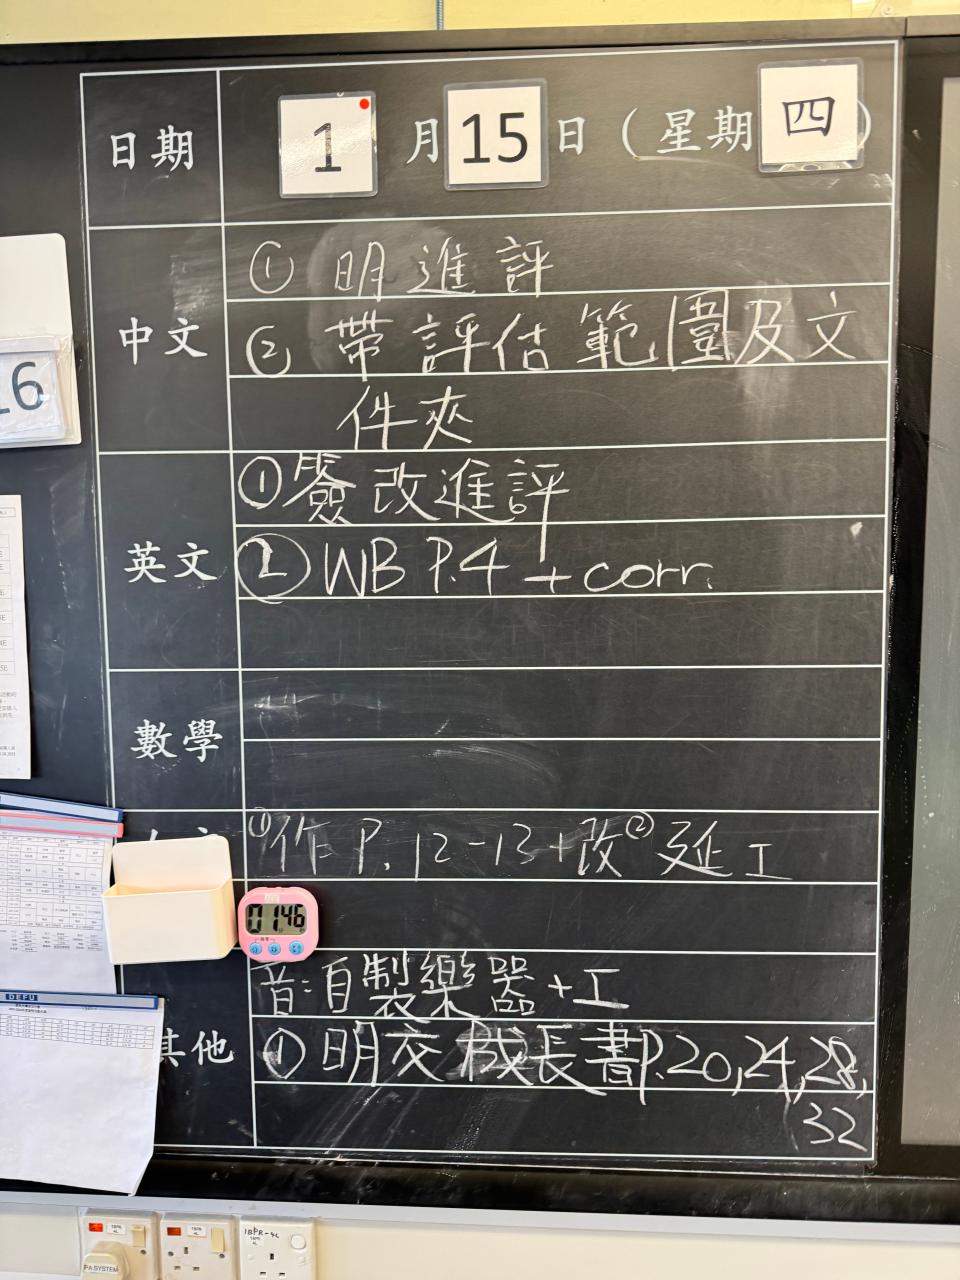 日期 1 月 15 日 (星期 四 )
中文
① 明進評
② 帶評估範圍及文
件夾
英文
① 簽改進評
② WB P.4 + corr.
數學
① 作 P. 12-13 + 改 ② 延工
16
01:46
音:自製樂器+工
其他
① 明交成長書P.20,24,28,
32
DEFU
1BPR 4L
1BPR 4L
1BPR-4L
PA SYSTEM